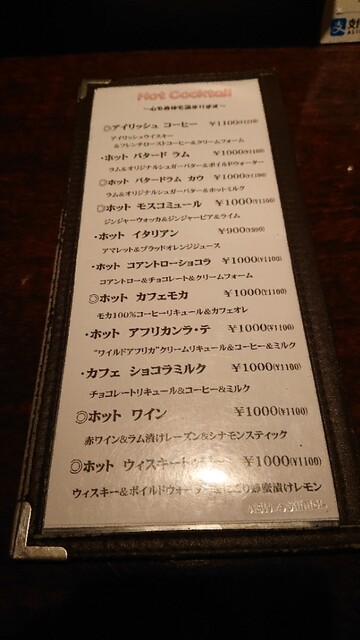 Hot Cocktail
～心も身体も温まります～
◎アイリッシュ コーヒー ￥1100(¥1210)
アイリッシュウイスキー
&フレンチローストコーヒー&クリームフォーム
・ホット バタード ラム ￥1000(¥1100)
ラム&オリジナルシュガーバター&ボイルドウォーター
◎ホット バタードラム カウ ￥1000(¥1100)
ラム&オリジナルシュガーバター&ホットミルク
◎ホット モスコミュール ￥1000(¥1100)
ジンジャーウォッカ&ジンジャービア&ライム
・ホット イタリアン ￥900(¥990)
アマレット&ブラッドオレンジジュース
・ホット コアントローショコラ ￥1000(¥1100)
コアントロー&チョコレート&クリームフォーム
◎ホット カフェモカ ￥1000(¥1100)
モカ100%コーヒーリキュール&カフェオレ
・ホット アフリカンラ・テ ￥1000(¥1100)
"ワイルドアフリカ"クリームリキュール&コーヒー&ミルク
・カフェ ショコラミルク ￥1000(¥1100)
チョコレートリキュール&コーヒー&ミルク
◎ホット ワイン ￥1000(¥1100)
赤ワイン&ラム漬けレーズン&シナモンスティック
◎ホット ウィスキー ￥1000(¥1100)
ウィスキー&ボイルドウォーター 蜂蜜漬けレモン